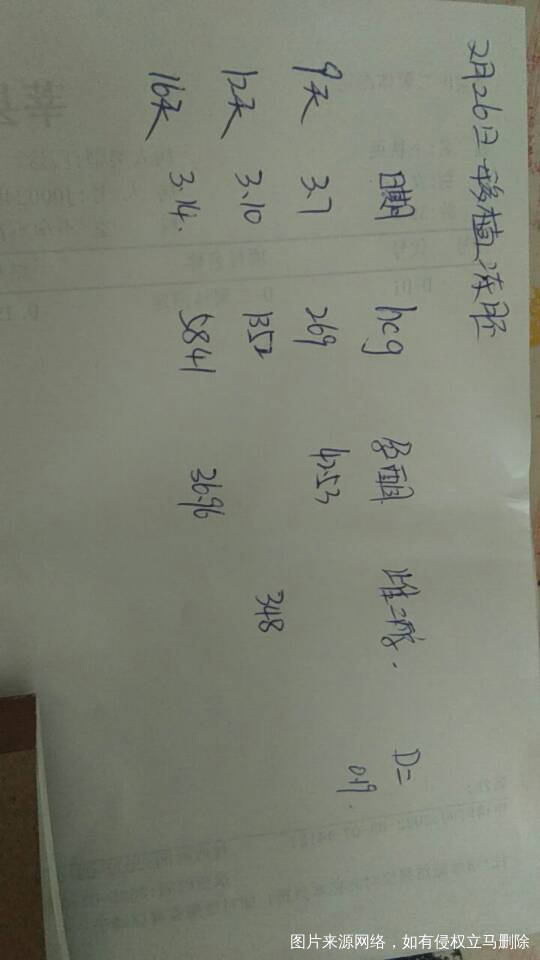 2月26日移植冻胚
日期 hcg 孕酮 雌二醇. D=
9天 3.7 269 42.53 0.19.
12天 3.10 1352 348
16天 3.14. 5841 36.96
图片来源网络，如有侵权立马删除